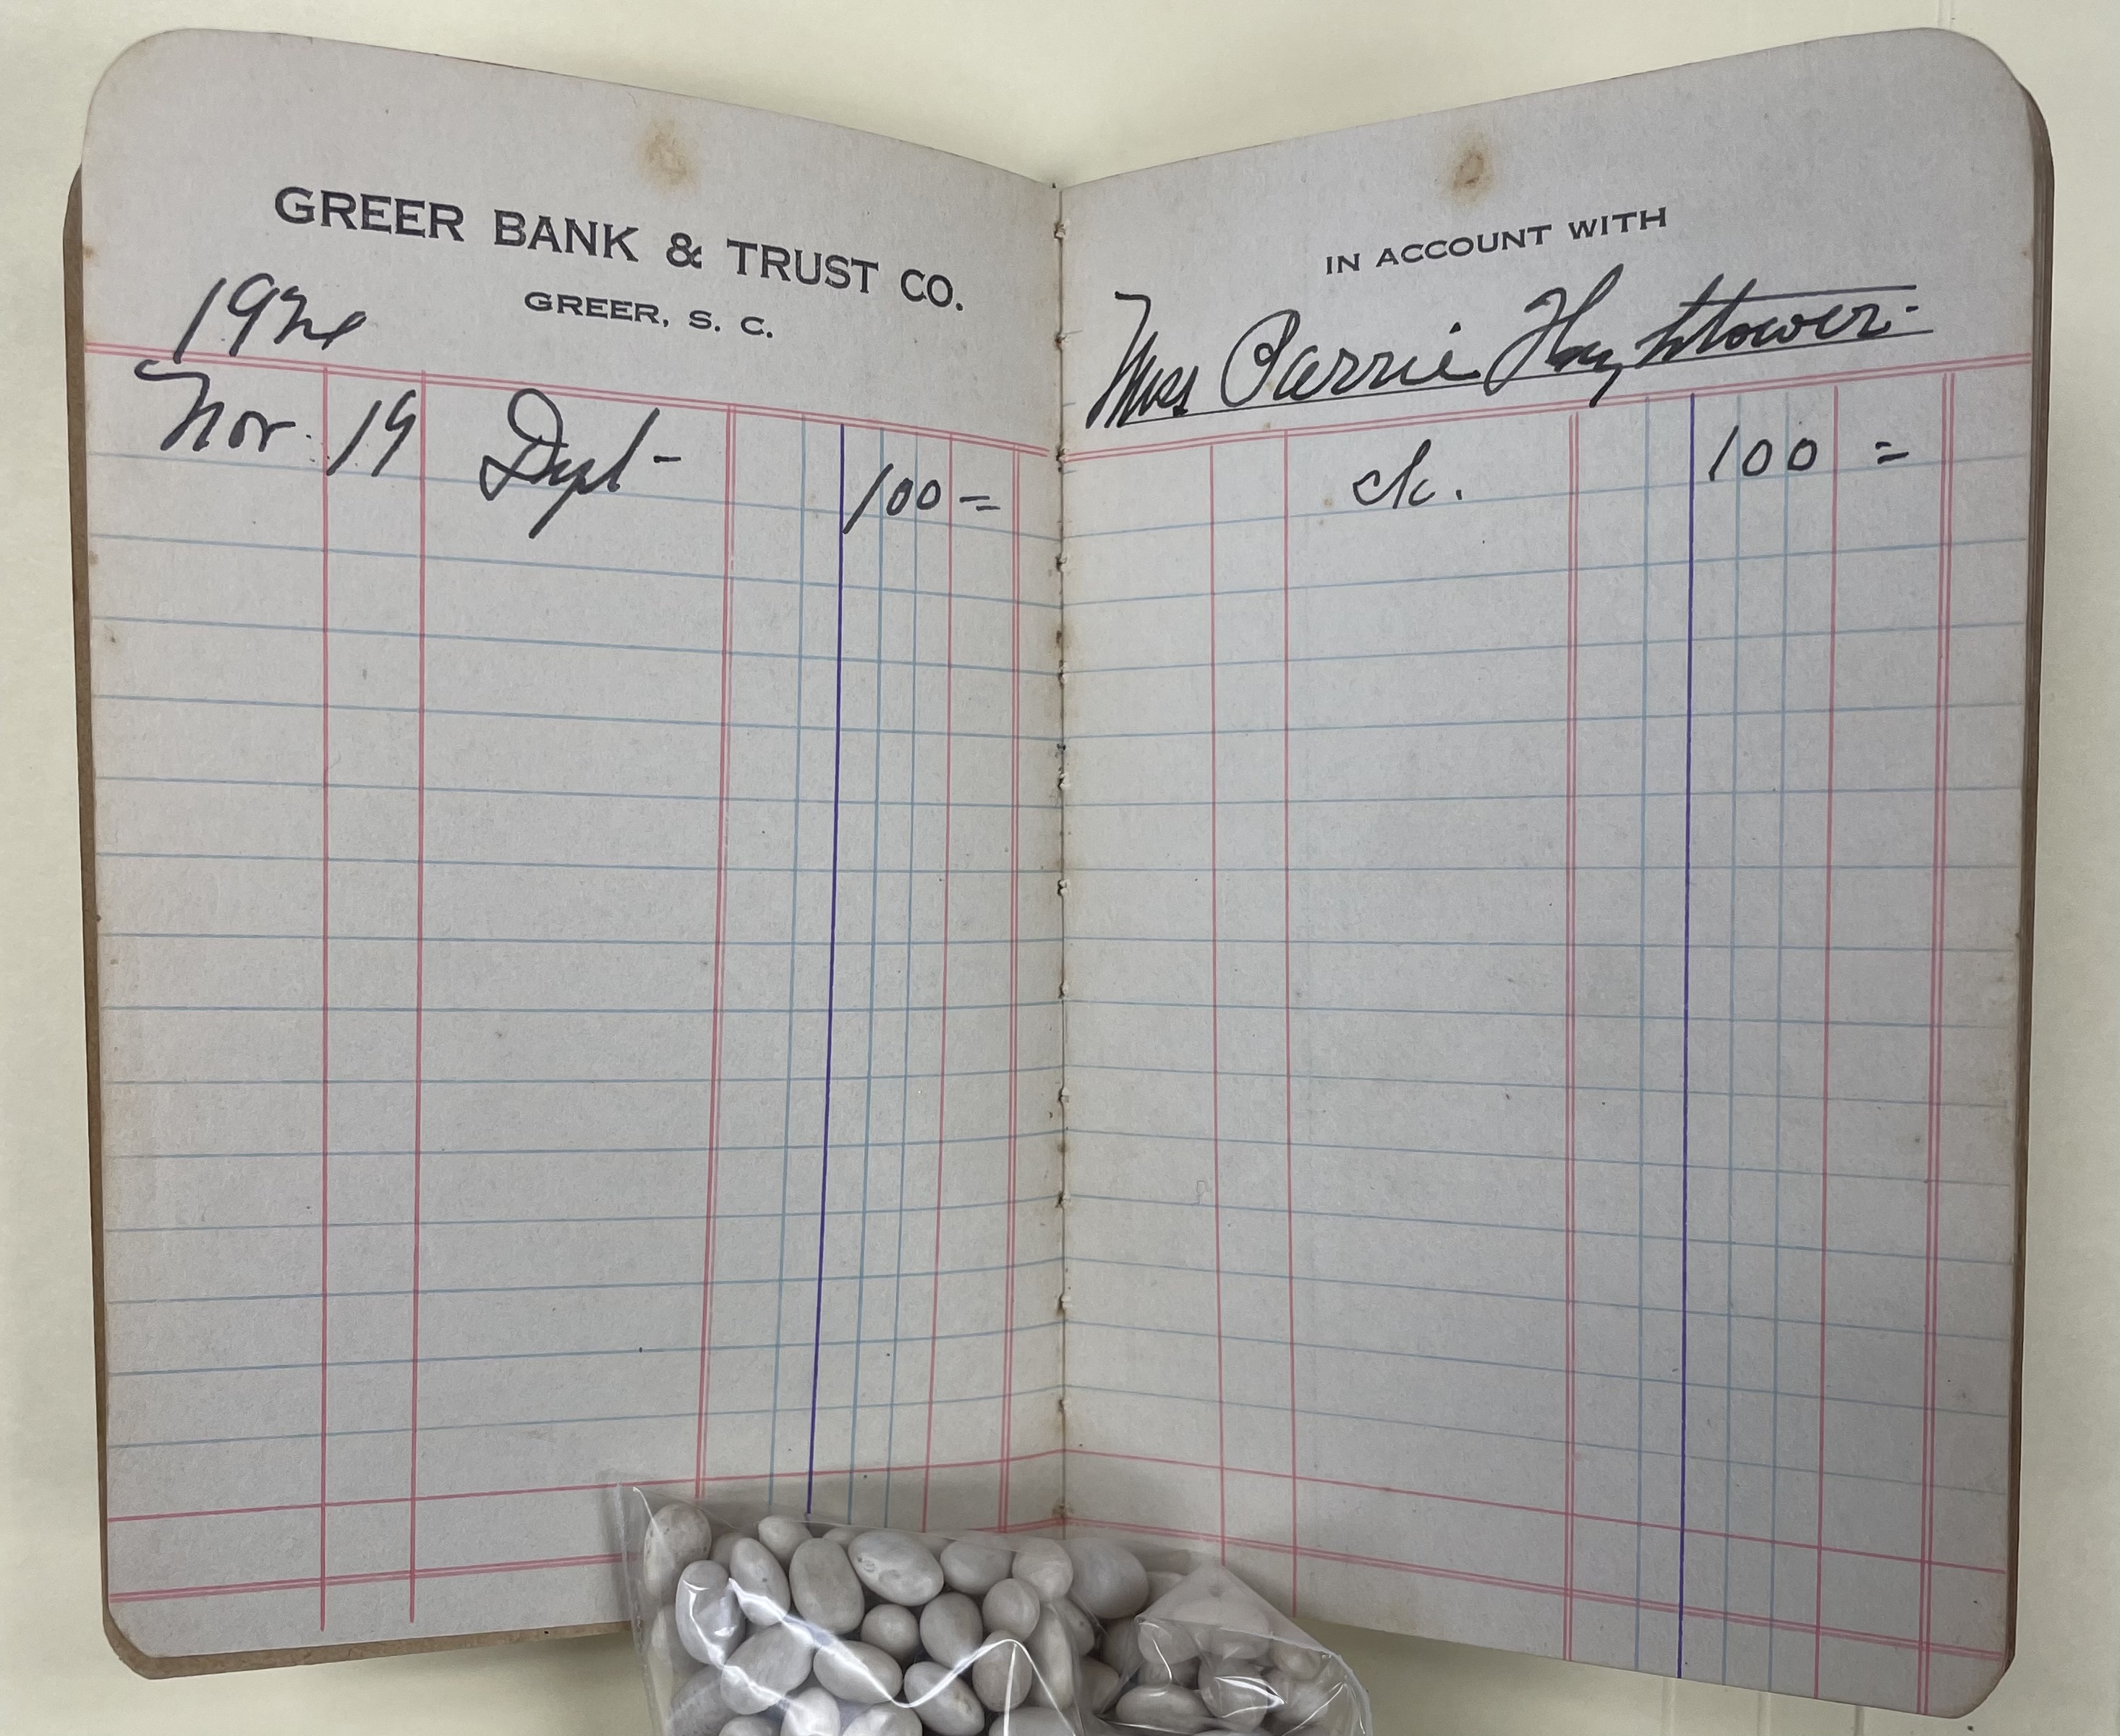 GREER BANK & TRUST CO.
GREER, S. C.
Nov. 19 Dept- 100 =
IN ACCOUNT WITH
Miss Carrie Hightower.
ck. 100 =